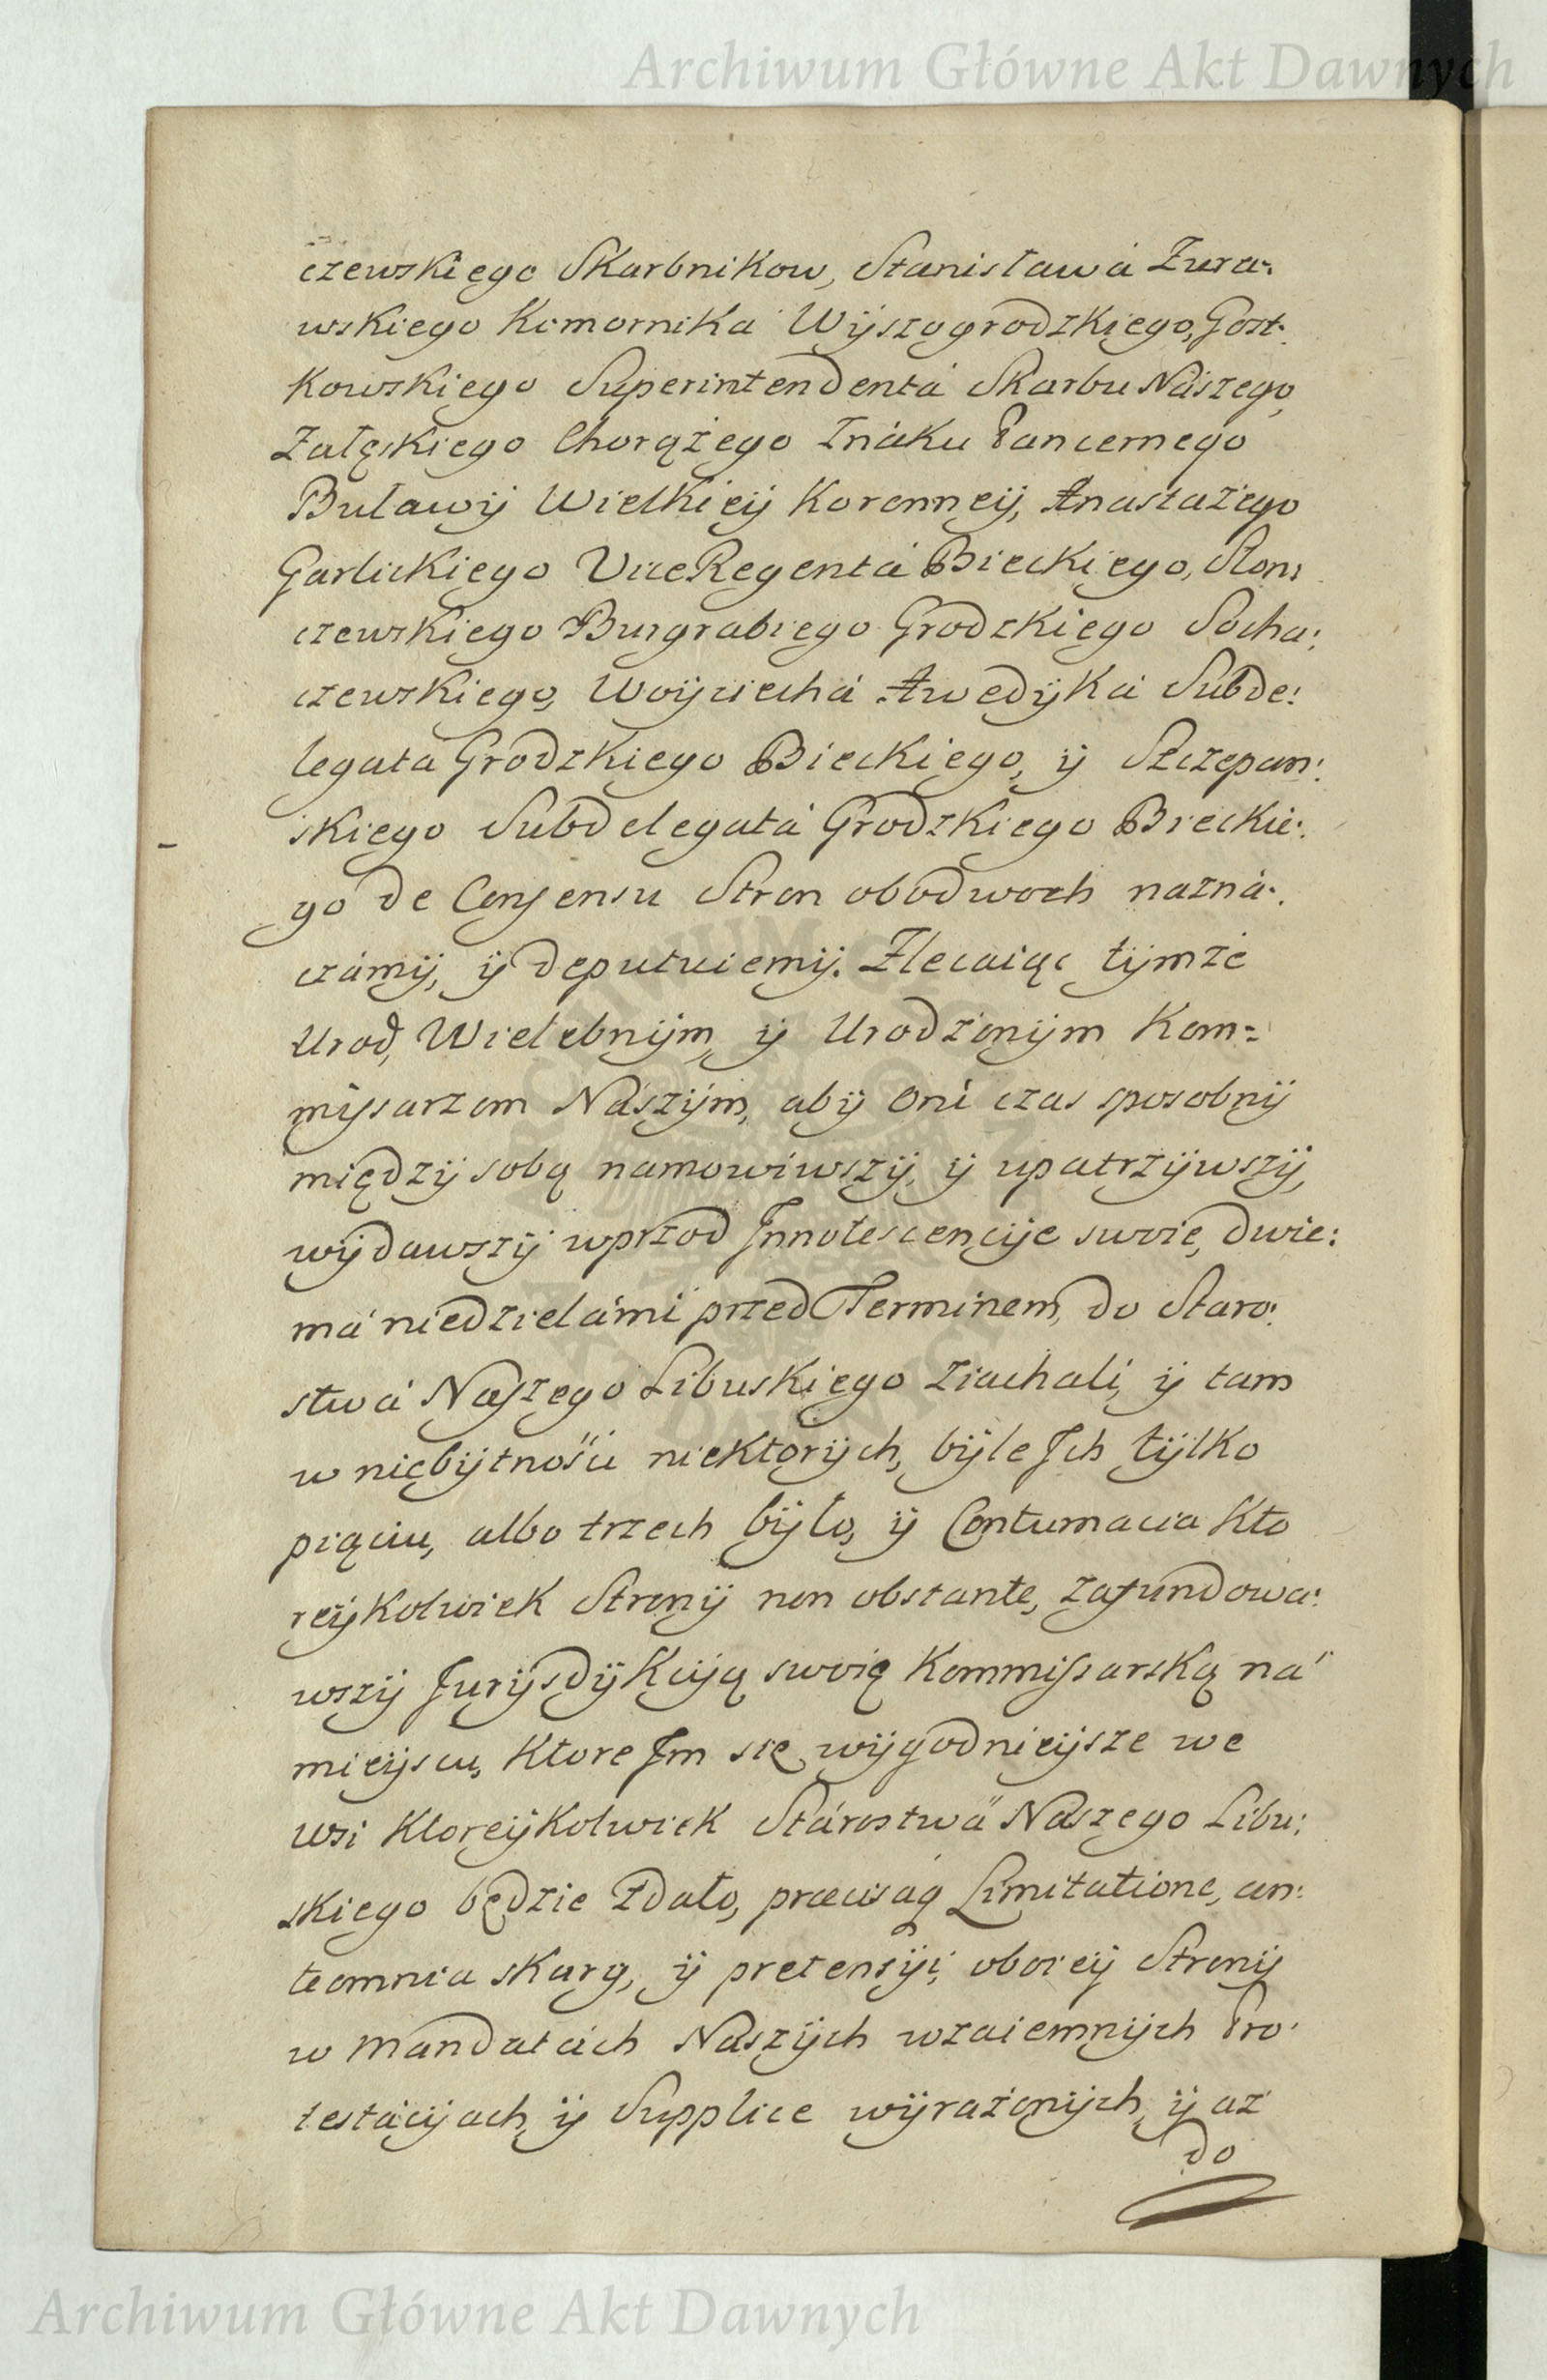 Archiwum Główne Akt Dawnych
czewskiego Skarbnikow, Stanisława Zura:
wskiego Komornika Wyszogrodzkiego, Gost:
kowskiego Superintendenta Skarbu Nászego,
Załęskiego Chorążego Znáku Pancernego
Buławÿ Wielkieÿ Koronneÿ, Anastazego
Garlickiego ViceRegentá Bieckiego, Słom
czewskiego Burgrabiego Grodzkiego Socha:
czewskiego, Woÿciechá Awedÿká Subde:
legata Grodzkiego Bieckiego, ÿ Szczepan:
skiego Subdelegatá Grodzkiego Bieckie:
go de Consensu Stron obodwoch nazná:
czámÿ, ÿ deputuiemÿ. Zlecaiąc tÿmże
Urod, Wielebnÿm, ÿ Urodzonÿm Kom=
missarzom Nászÿm, abÿ oni czas sposobnÿ
międzÿ sobą namowiwszÿ, ÿ upatrzÿwszÿ,
wÿdawszÿ wprzod Innotescencÿe swoie, dwie:
má niedzielámi przed Terminem, do Staro:
stwá Naszego Libuskiego ziachali, ÿ tam
w niebÿtnośći niektorÿch, bÿle Ich tÿlko
pięciu, albo trzech bÿło, ÿ Contumacia kto
reÿkolwiek Stronÿ non obstante, zafundowa:
wszÿ Jurÿsdÿkcÿą swoię Kommissarską ná
mieÿscu, ktore Im się wÿgodnieÿsze we
wsi ktoreÿkolwiek Stárostwá Naszego Libu:
skiego będzie zdało, præcisáq Limitatione, an:
teomnia skarg, ÿ pretensÿi, oboieÿ Stronÿ
w Mandatách Naszÿch wzaiemnÿch Pro:
testácÿach, ÿ Supplice wÿrażonÿch, ÿ aż
do
Archiwum Główne Akt Dawnych